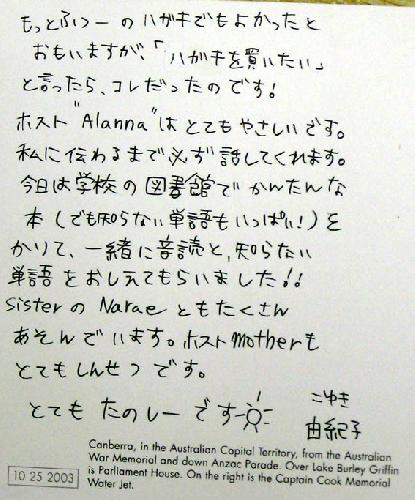 もっとふつーのハガキでもよかったと
おもいますが、「ハガキを買いたい」
と言ったら、コレだったのです!
ホスト"Alanna"はとてもやさしいです。
私に伝わるまで必ず話してくれます。
今日は学校の図書館でかんたんな
本(でも知らない単語もいっぱい!)を
かりて、一緒に音読と、知らない
単語をおしえてもらいました!!
sisterの Naraeともたくさん
あそんでいます。ホストmotherも
とてもしんせつです。
とてもたのしーです
こゆき
由紀子
Canberra, in the Australian Capital Territory, from the Australian
War Memorial and down Anzac Parade. Over Lake Burley Griffin
is Parliament House. On the right is the Captain Cook Memorial
Water Jet.
10 25 2003